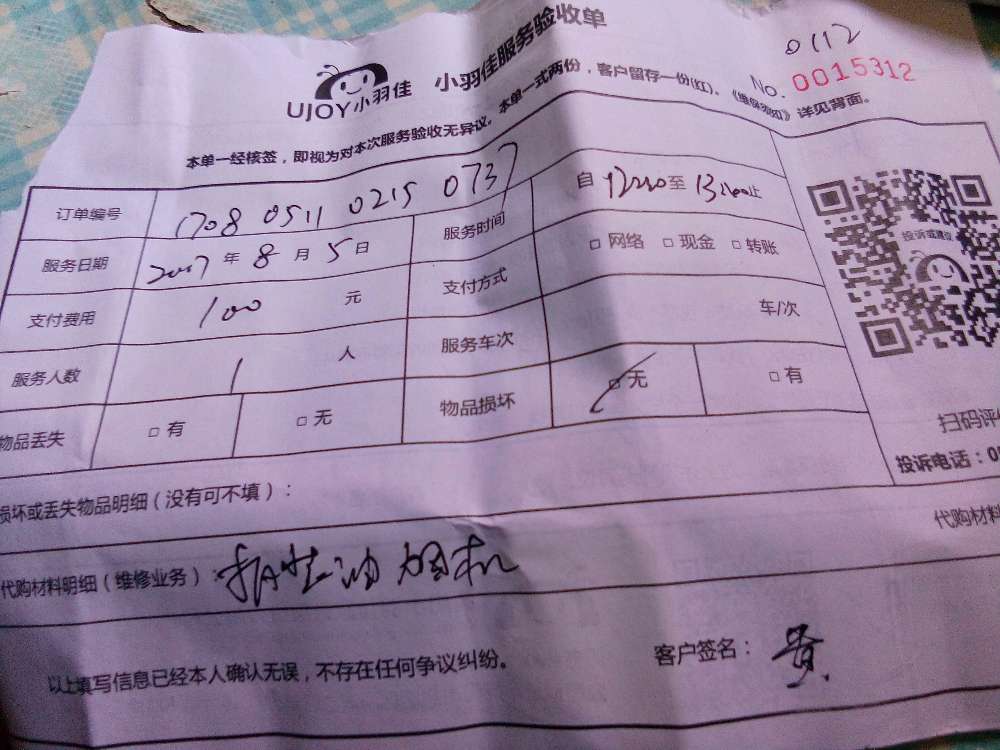 0112
No. 0015312
UJOY小羽佳 小羽佳服务验收单
本单一经核签，即视为对本次服务验收无异议。本单一式两份，客户留存一份(红)。《维保须知》详见背面。
订单编号 1708 0511 0215 0737 服务时间 自 12:00 至 13:00 止
服务日期 2017 年 8 月 5 日 支付方式 □ 网络 □ 现金 □ 转账
支付费用 100 元 服务车次 车/次
服务人数 1 人 物品损坏 □ 无 □ 有
物品丢失 □ 有 □ 无
投诉或建议
扫码评
投诉电话：0
损坏或丢失物品明细（没有可不填）：
代购材料
代购材料明细（维修业务）：油烟机
以上填写信息已经本人确认无误，不存在任何争议纠纷。
客户签名：贵